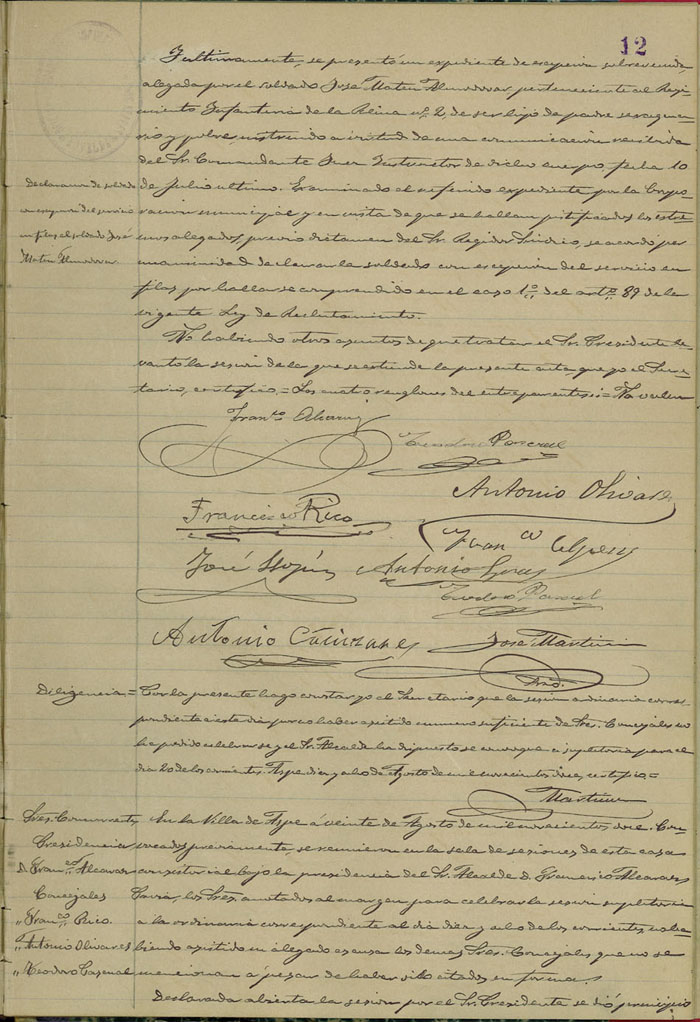 12
Y ultimamente, se presentó un expediente de excepcion sobrevenida
alegada por el soldado José Mateu Almodovar, perteneciente al Regi-
miento Infanteria de la Reina nº 2, de ser hijo de padre sexagena-
rio y pobre, instruido a virtud de una comunicacion recibida
del Sr. Comandante Juez Instructor de dicho cuerpo, fecha 10
de Julio ultimo. Examinado el referido expediente por la Corpo-
racion municipal y en vista de que se hallan justificados los extre-
mos alegados, previo dictamen del Sr. Regidor Sindico, se acordó por
unanimidad declararle soldado con excepcion del servicio en
filas por hallarse comprendido en el caso 1º del artº 89 de la
vigente Ley de Reclutamiento.
Declaracion de soldado
con excepcion del servicio
en filas al soldado José
Mateu Almodovar.
No habiendo otros asuntos de que tratar el Sr. Presidente le-
vantó la sesion de la que se extiende la presente acta, que yo el Secre-
tario, certifico.= Los cuatro renglones del entreparentesis= No valen
Franco Alcaraz
Teodoro Pascual
Antonio Olivares
Francisco Rico
Juan
José
Antonio
Teodoro Pascual
Antonio Cañizares
José Martinez
Srio.
Diligencia = Por la presente hago constar yo el Secretario que la sesion ordinaria corres-
pondiente a este dia por no haber asistido numero suficiente de Sres. Concejales no
ha podido celebrarse y el Sr. Alcalde ha dispuesto se convoque a supletoria para el
dia 20 de los corrientes. Aspe diez y ocho de Agosto de mil novecientos doce, certifico=
Martinez
Sres. Concurrentes
Presidencia
D. Franco Alcaraz
Concejales
" Franco Rico.
" Antonio Olivares
" Teodoro Pascual
En la Villa de Aspe á veinte de Agosto de mil novecientos doce. Con-
vocados previamente, se reunieron en la sala de sesiones de esta casa
consistorial bajo la presidencia del Sr. Alcalde D. Francisco Alcaraz
los Sres. anotados al margen para celebrar la sesion supletoria
a la ordinaria correspondiente al dia diez y ocho de los corrientes, no ha-
biendo asistido ni alegado excusa los demas Sres. Concejales que no se
mencionan a pesar de haber sido citados en forma.
Declarada abierta la sesion por el Sr. Presidente se dió principio